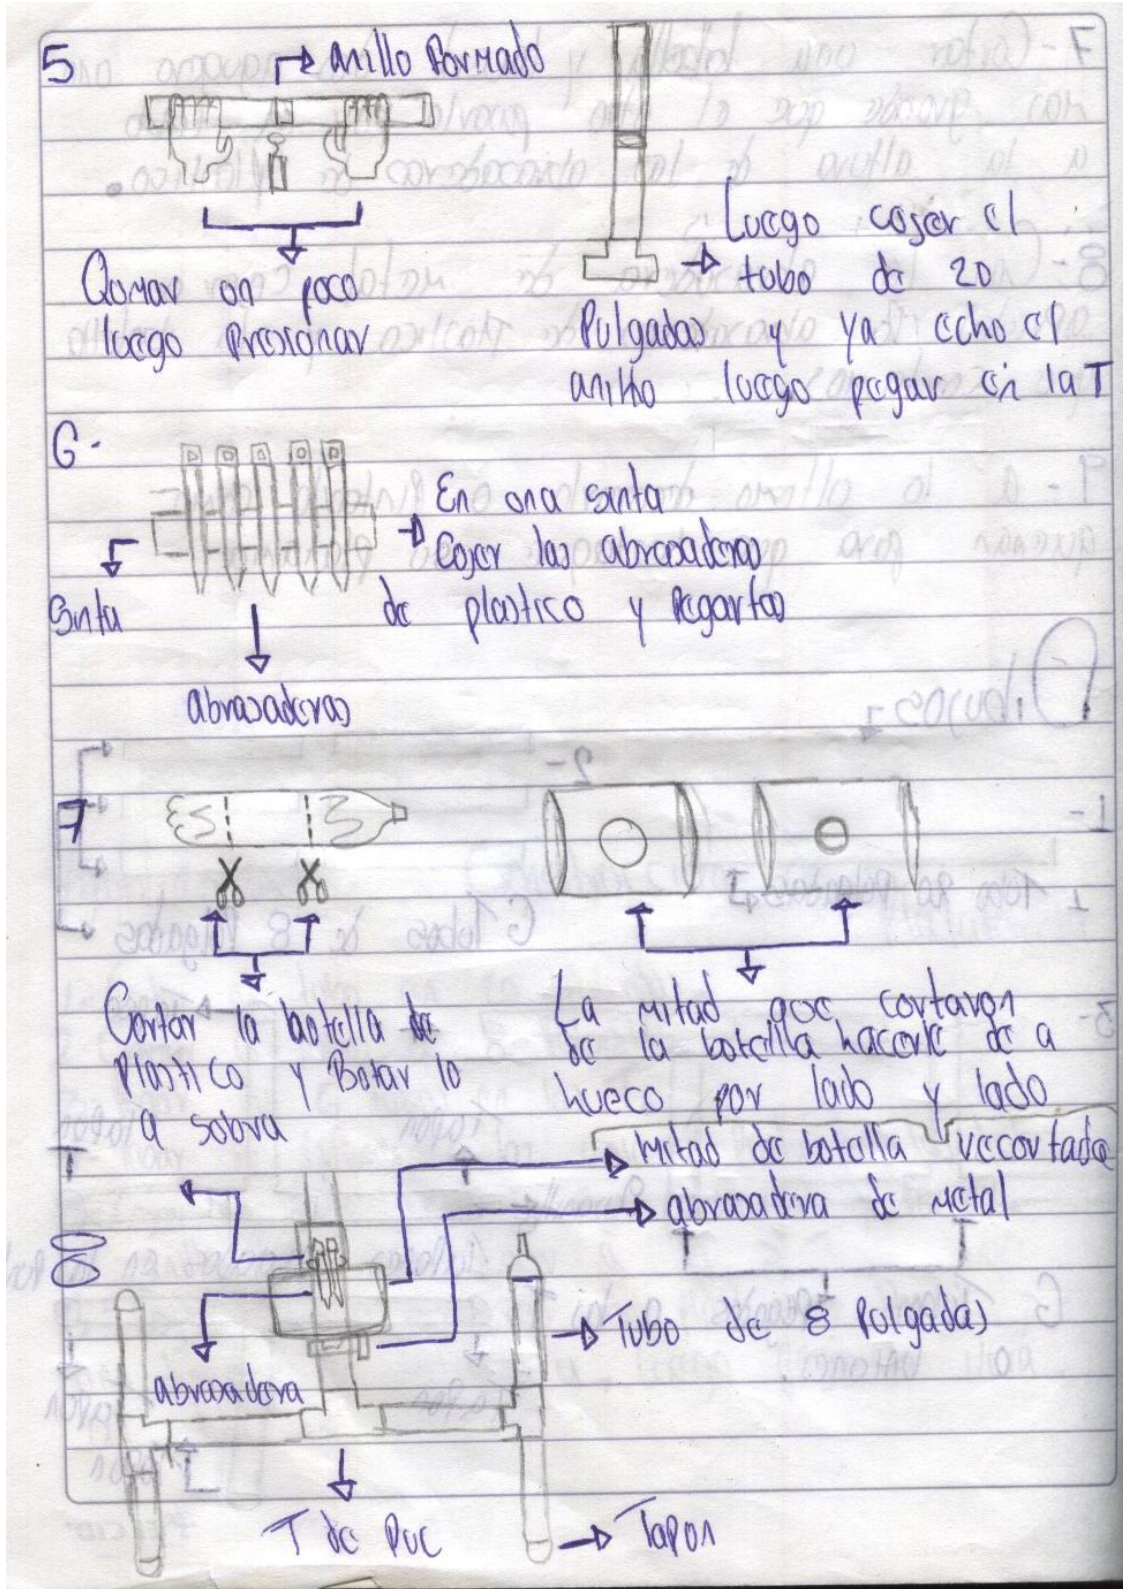 5
anillo Formado
Qomar on poco
luego Presionar
Luego cojer el
tubo de 20
Pulgadas y ya echo el
anillo luego pegar en la T
6-
En ona sinta
Cojer las abrasaderas
de plastico y Pegarlas
Sinta
abrasaderas
7
Cortar la botella de
Plastico y Botar lo
q sobra
La mitad que cortaron
de la botella hacerle de a
hueco por lado y lado
8
Mitad de botella recortada
abrasadera de Metal
Tubo de 8 Pulgadas
abrasadera
T de PVC
Tapon